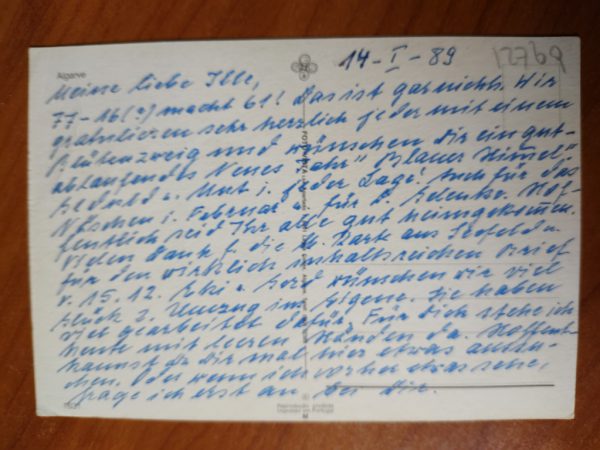 Algarve
14-I-89
12769
Meine liebe Ille,
77-16(?) macht 61! Das ist garnichts. Wir
gratulieren sehr herzlich jeder mit einem
Blütenzweig und wünschen Dir ein gut-
ablaufendes Neues "Jahr" "Blauer Himmel"
Geduld u. Mut i. jeder Lage! Auch für das
Näschen i. Februar u. für d. Gelenke. Hof-
fentlich seid Ihr alle gut heimgekommen.
Vielen Dank f. die Karte aus Seefeld u.
für den wirklich inhaltsreichen Brief
v. 15.12. u. wünschen wir viel
Glück z. Umzug ins Eigene. Sie haben
viel gearbeitet dafür. Für Dich stehe ich
heute mit leeren Händen da. Hoffent.
kannst Du Dir mal hier etwas aussu-
chen. Oder wenn ich vorher etwas sehe,
frage ich erst an bei Dir.